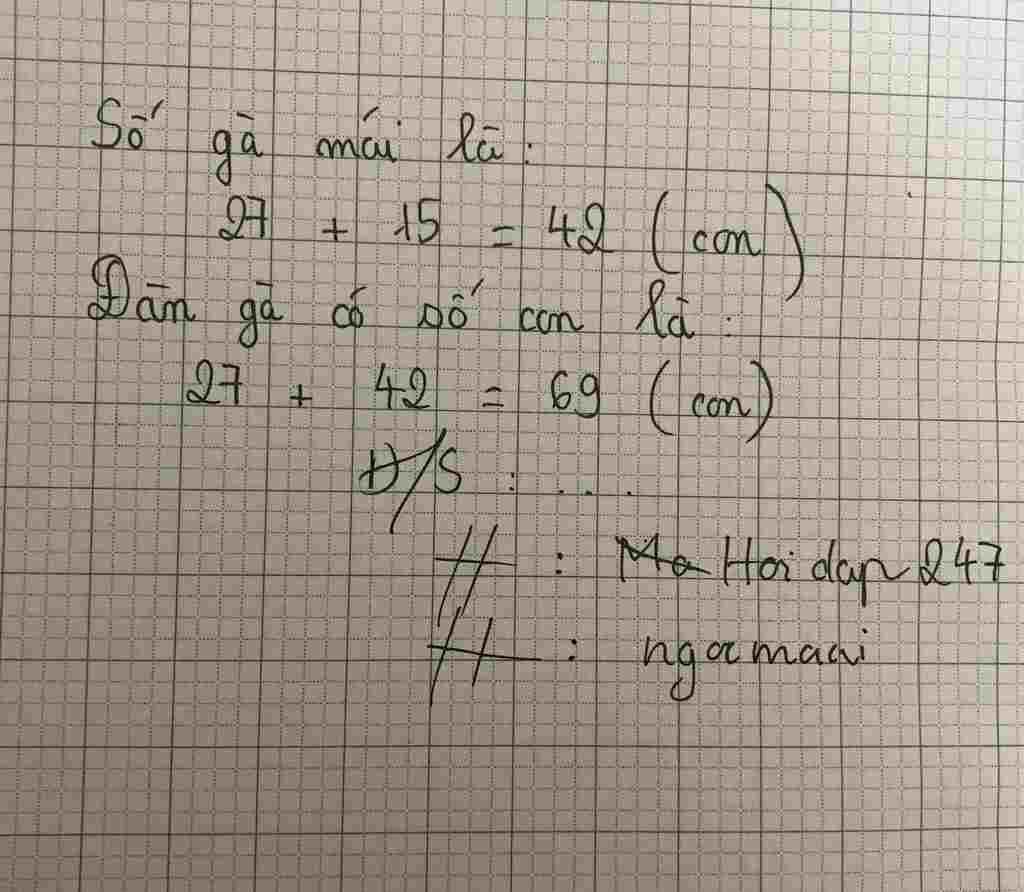 Số gà mái là:
27 + 15 = 42 (con)
Đàn gà có số con là:
27 + 42 = 69 (con)
Đ/S : ....
# : Hoidap247
# : ngocmaai